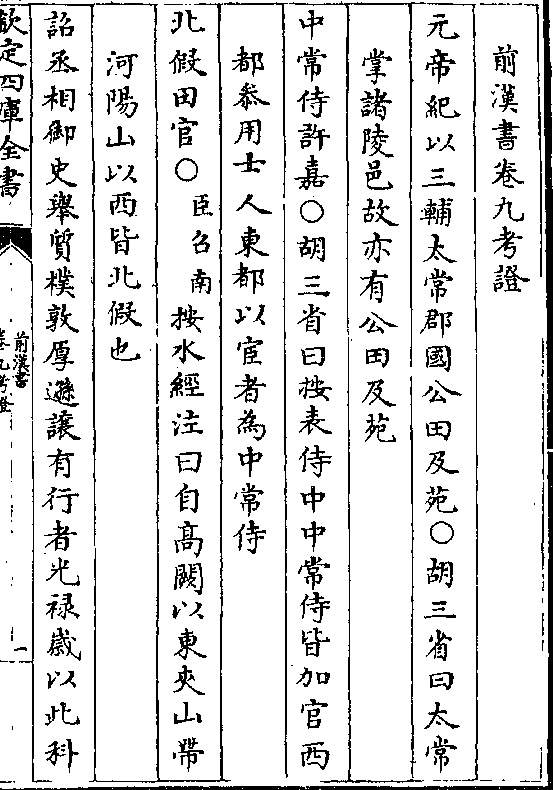 前漢書卷九考證
元帝紀以三輔太常郡國公田及苑○胡三省曰太常
掌諸陵邑故亦有公田及苑
中常侍許嘉○胡三省曰按表侍中中常侍皆加官西
都叅用士人東都以宦者為中常侍
北假田官○臣召南按水經注曰自髙闕以東夾山帶
河陽山以西皆北假也
詔丞相御史舉質樸敦厚遜讓有行者光禄嵗以此科
欽定四庫全書
前漢書
卷九考證
一